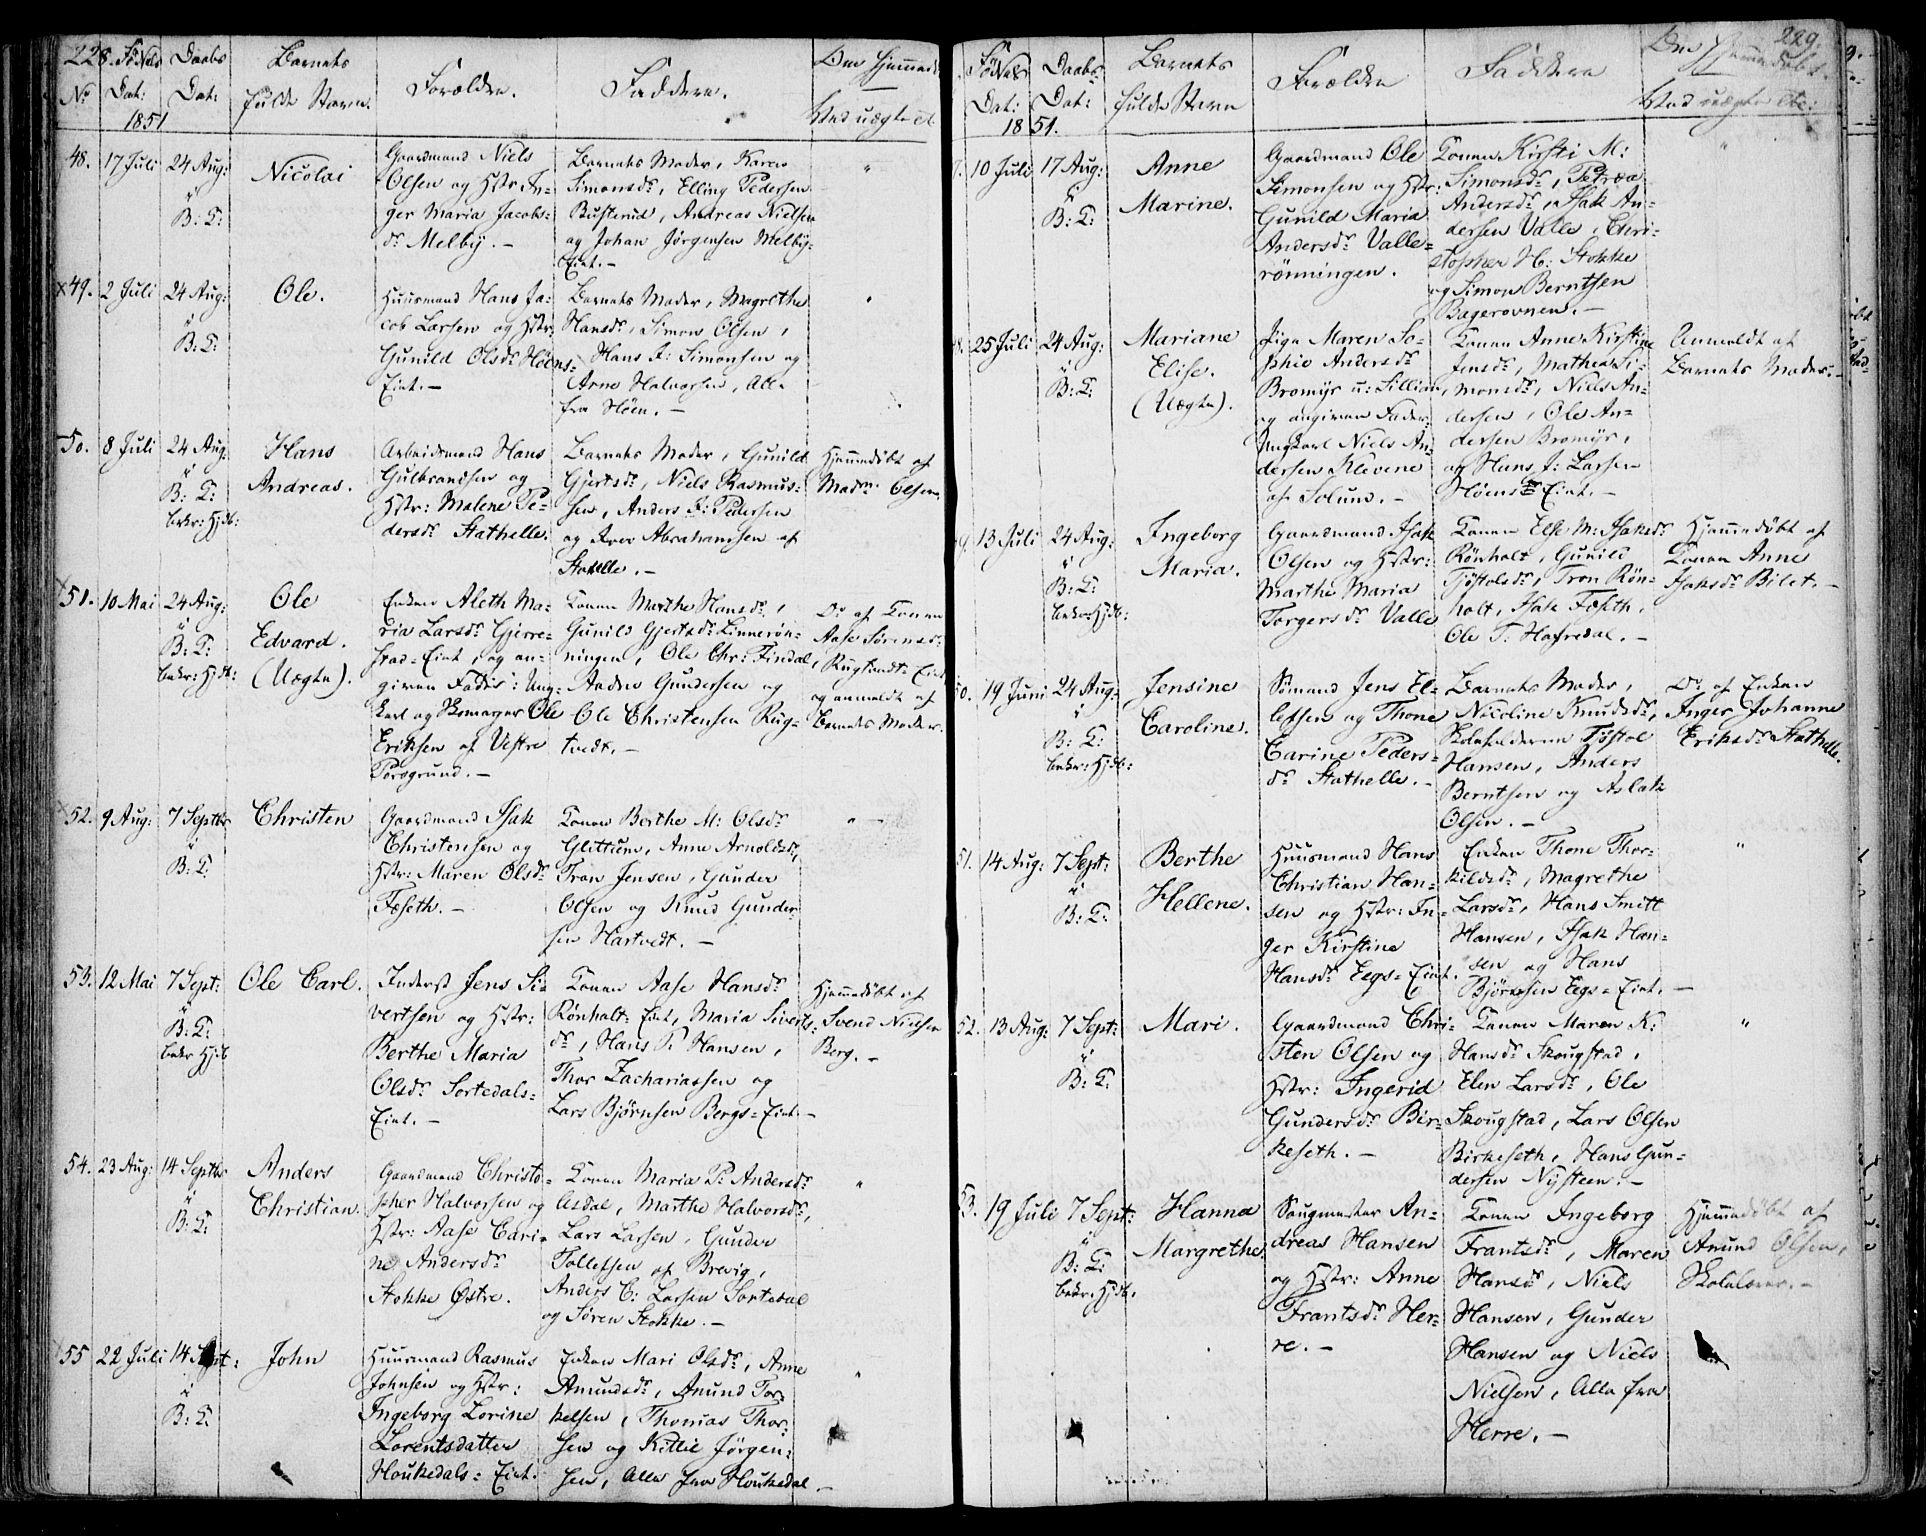 228.
No
Fødsels
Dat:
1851
Daabs
Dat:
Barnets
fulde Navn.
Forældre.
Faddere.
Om Hjemmed.
Ved uægte et
48.
17 Juli
24 Aug:
i
B: K:
Nicolai
Gaardmand Niels
Olsen og Hstr: In-
ger Maria Jacobs-
dr Melby. —
Barnets Moder, Karen
Simonsdr, Elling Pedersen
Busterud, Andreas Nielsen
og Johan Jørgensen Melby-
Eiet. —
"
49.
2 Juli
24 Aug:
i
B: K:
Ole.
Huusmand Hans Ja-
cob Larsen og Hstr:
Gunild Olsdr Høens-
Eiet. —
Barnets Moder, Magrethe
Hansdr, Simon Olsen,
Hans J: Simonsen og
Arne Halvorsen, Alle
fra Høen. —
"
50.
8 Juli
24 Aug:
i
B: K:
bekr: Hjdb:
Hans
Andreas.
Arbeidsmand Hans
Gulbrandsen og
Hstr: Malene Pe-
dersdr Stathelle.
Barnets Moder, Gunild
Gjertsdr, Niels Rasmus-
sen, Anders J: Pedersen
og Iver Abrahamsen af
Stathelle. —
Hjemmedøbt af
Madm. Olsen.
51.
10 Mai
24 Aug:
i
B: K:
bekr: Hjdb:
Ole
Edvard.
(Uægte).
Enken Aleth Ma-
ria Larsdr Gjerre-
stad-Eiet, og an-
given Fader: Ung-
karl og Skomager Ole
Eriksen af Vestre
Porsgrund. —
Konen Marthe Hansdr,
Gunild Gjertsdr Linnerøn-
ningen, Ole Chr: Findal,
Anders Gundersen og
Ole Christensen Rug-
tvedt. —
Do af Konen
Aase Sørensdr
Rugtvedt-Eiet
og anmeldt af
Barnets Moder.
52.
9 Aug:
7 Septbr
i
B: K:
Christen
Gaardmand Isak
Christensen og
Hstr: Maren Olsdr
Fæseth. —
Konen Berthe M: Olsdr
Glittum, Anne Arnoldsdr,
Tron Jensen, Gunder
Olsen og Knud Gunder-
sen Hartvedt. —
" —
53.
12 Mai
7 Sept:
i
B: K:
bekr Hjdb
Ole Carl.
Inderst Jens Si-
vertsen og Hstr:
Berthe Maria
Olsdr Sortedals-
Eiet. —
Konen Aase Hansdr
Rønholt-Eiet, Maria Siverts-
dr, Hans P. Hansen,
Thor Zachariassen og
Lars Bjørnsen Bergs-Eiet. —
Hjemmedøbt af
Svend Nielsen
Berg. —
54.
23 Aug:
14 Septbr
i
B: K:
Anders
Christian.
Gaardmand Christo-
pher Halvorsen og
Hstr: Aase Cari-
ne Andersdr
Stokke Østre.
Konen Maria P. Andersdr
Asdal, Marthe Halvorsdr,
Lars Larsen, Gunder
Tollefsen af Brevig,
Anders C: Larsen Sortedal
og Søren Stokke. —
"
55
22 Juli
14 Sept:
i
B: K:
John
Huusmand Rasmus
Johnsen og Hstr:
Ingeborg Lorine
Lorentsdatter
Houkedals-Eiet.
Enken Mari Olsdr, Anne
Amundsdr, Anund Tor-
kelsen, Thomas Thor-
sen og Kittil Jørgen-
sen, Alle fra Houkedal. —
"
229.
Fødsels
Dat:
Daabs
Dat:
1851.
Barnets
fulde Navn
Forældre
Faddere
Om Hjemmedøbt.
Ved uægte etc:
7.
10 Juli
17 Aug:
i
B: K:
Anne
Marine.
Gaardmand Ole
Simonsen og Hstr:
Gunild Maria
Andersdr Valle-
rønningen.
Konen Kirsti M:
Simonsdr, Petrea
Andersdr, Isak An-
dersen Valle, Chri-
stopher H: Stokke
og Simon Berntsen
Bagerovnen. —
"
48.
25 Juli
24 Aug:
i
B: K:
Mariane
Elise.
(Uægte).
Pige Maren So-
phie Andersdr
Bromyr u: Lillien
og angiven Fader
Ungkarl Niels An-
dersen Klevene
af Solum. —
Konen Anne Kirstine
Jensdr, Mathea Si-
monsdr, Niels An-
dersen, Ole An-
dersen Bromyr,
og Hans J: Larsen
Høens Eiet. —
Anmeldt af
Barnets Moder. —
49.
13 Juli
24 Aug:
i
B: K:
bekr: Hjdb:
Ingeborg
Maria.
Gaardmand Isak
Olsen og Hstr:
Marthe Maria
Torgersdr Valle
Konen Else M: Isaksdr
Rønholt, Gunild
Tjøstolsdr, Tron Røn-
holt, Isak Fæseth,
Ole T. Hafredal. —
Hjemmedøbt af
Konen Anne
Isaksdr Bilet. —
50.
19 Juni
24 Aug:
i
B: K:
bekr: Hjdb:
Jensine
Caroline.
Sømand Jens El-
lefsen og Thone
Carine Peders-
dr Stathelle. —
Barnets Moder,
Nicoline Knudsdr,
Skoleholderen Tjøstol
Hansen, Anders
Berntsen og Aslak
Olsen. —
Do af Enken
Inger Johanne
Eriksdr Stathelle.
51.
14 Aug:
7 Sept:
i
B: K:
Berthe
Hellene.
Huusmand Hans
Christian Han-
sen og Hstr: In-
ger Kirstine
Hansdr Eegs-Eiet.
Enken Thone Thor-
kildsdr, Magrethe
Larsdr, Hans Smitt
Hansen, Isak Han-
sen og Hans
Bjørnsen Eegs-Eiet. —
"
52.
13 Aug:
7 Sept:
i
B: K:
Mari.
Gaardmand Chri-
sten Olsen og
Hstr: Ingerid
Gundersdr Bir-
keseth. —
Konen Maren K:
Hansdr Skougstad,
Elen Larsdr, Ole
Skougstad, Lars Olsen
Birkeseth, Hans Gun-
dersen Nysteen. —
"
53.
19 Juli
7 Sept:
i
B: K:
bekr. Hjdb.
Hanna
Margrethe
Saugmester An-
dreas Hansen
og Hstr: Anne
Frantsdr Her-
re. —
Konen Ingeborg
Frantsdr, Maren
Hansdr, Niels
Hansen, Gunder
Hansen og Niels
Nielsen, Alle fra
Herre. —
Hjemmedøbt af
Anund Olsen,
Skolelærer. —